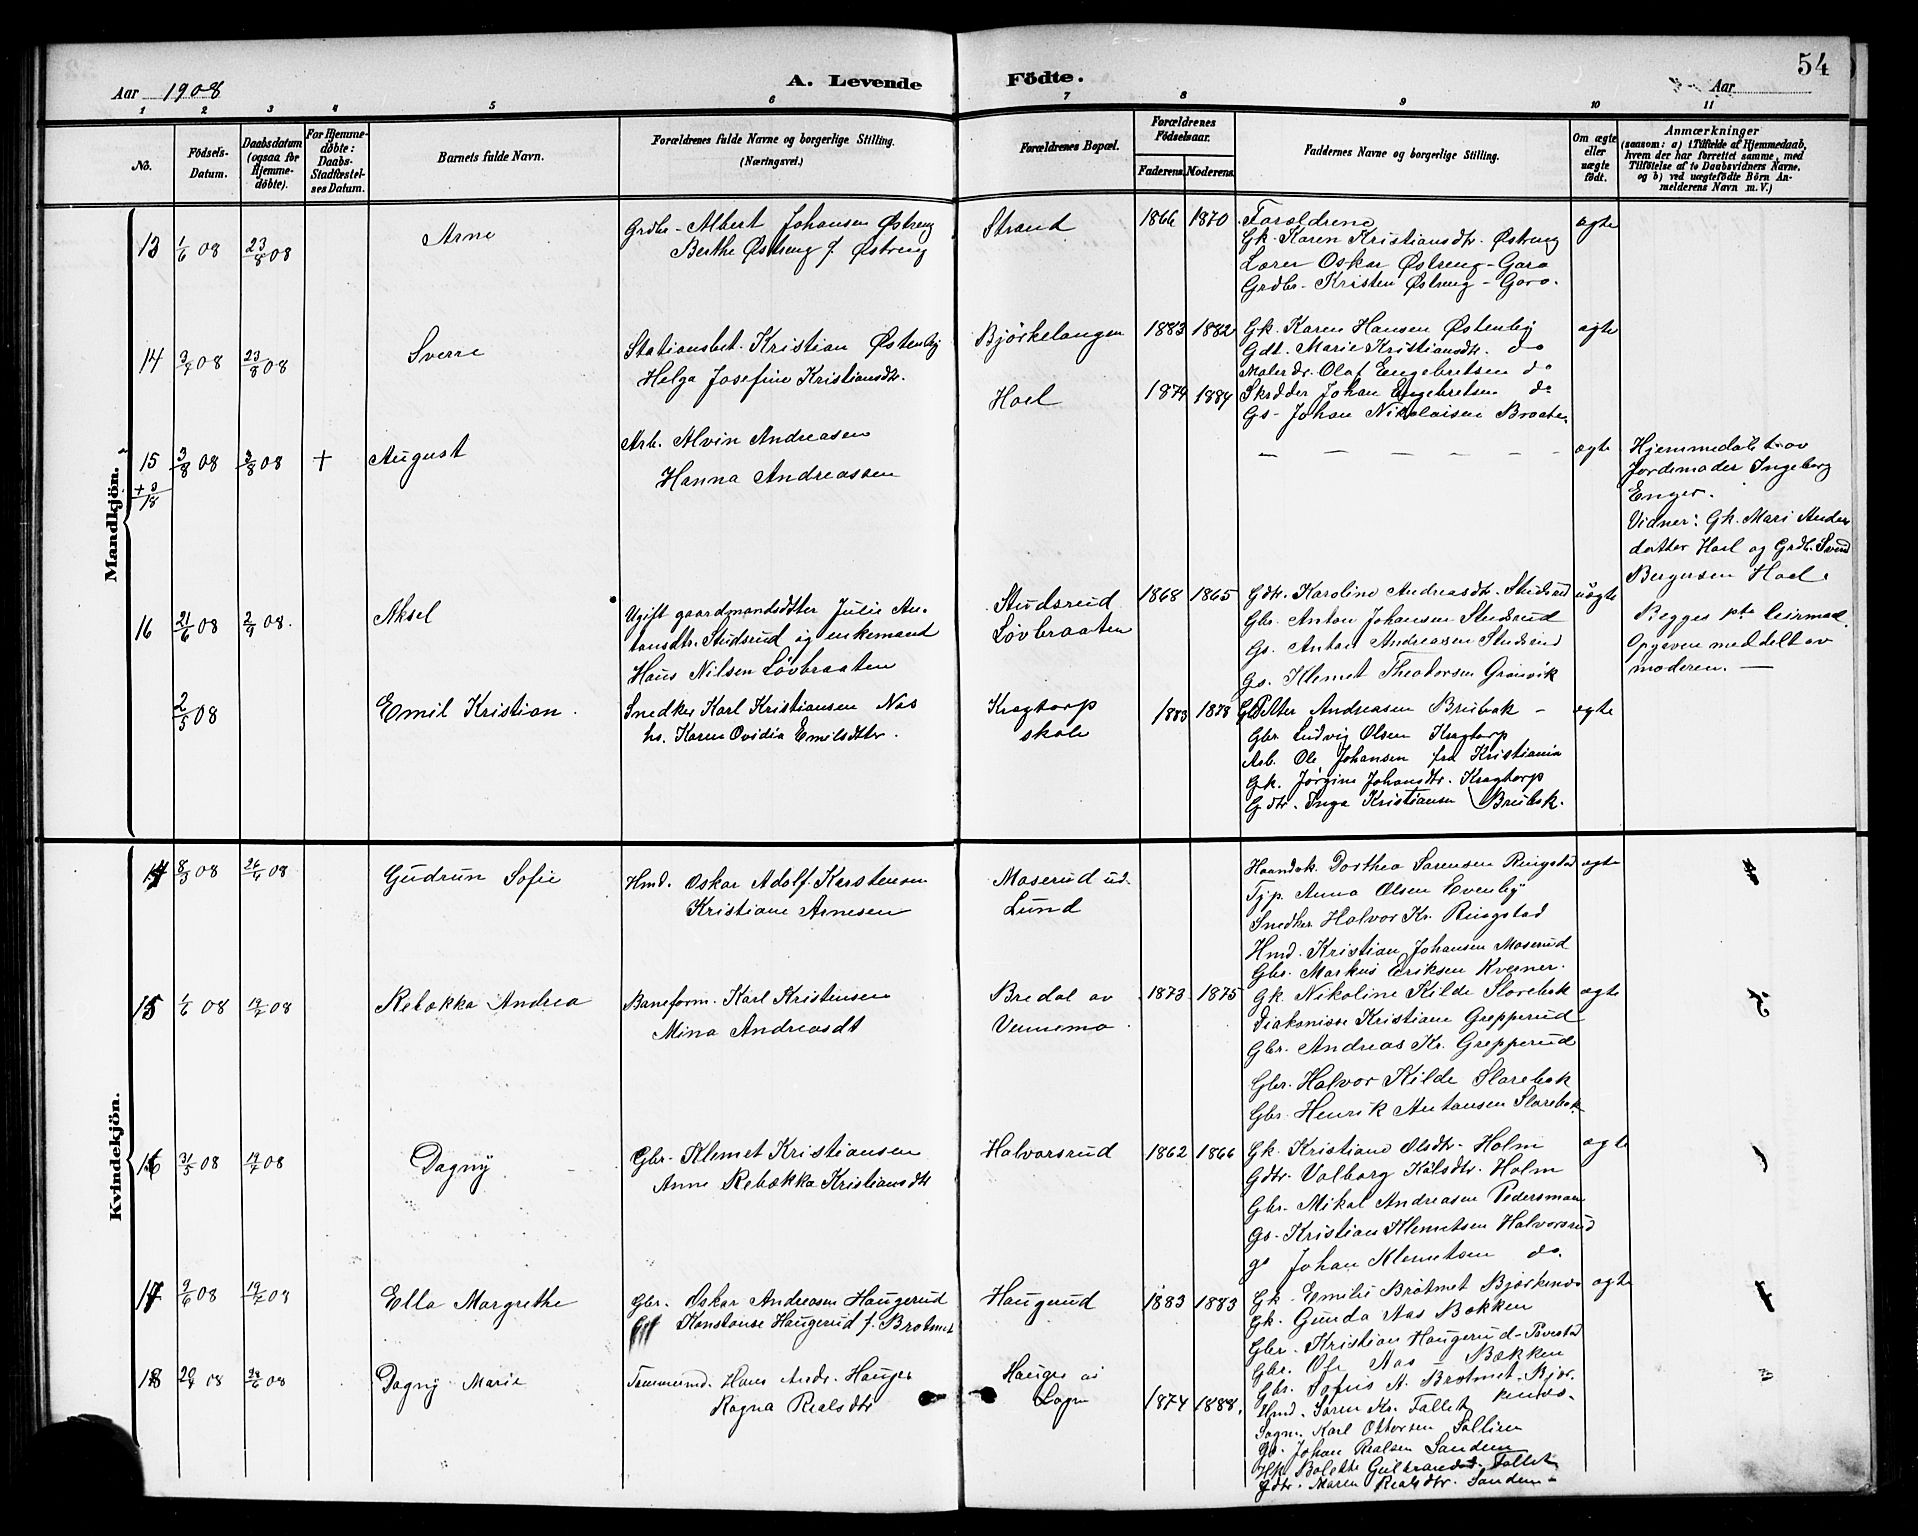 54
Aar 1908
A. Levende Födte.
Aar
1 2 3 4 5 6 7 8 9 10 11
No.
Födsels-Datum.
Daabsdatum (ogsaa for Hjemme-döbte).
For Hjemme-döbte: Daabs-Stadfæstel-ses Datum.
Barnets fulde Navn.
Forældrenes fulde Navne og borgerlige Stilling. (Næringsvei.)
Forældrenes Bopæl.
Forældrenes Födselsaar.
Faderens. Moderens.
Faddernes Navne og borgerlige Stilling.
Om ægte eller uægte födt.
Anmærkninger
(saasom: a) i Tilfælde af Hjemmedaab, hvem der har forrettet samme, med Tilföielse af to Daabsvidners Navne, og b) ved uægtefödte Börn An-melderens Navn m. V.)
Mandkjön.
13 1/6 08 23/8 08 Arne
Grdbr. Albert Johansen Østreng
Berthe Østreng f. Østreng
Strand 1866 1870
Forældrene
Gk. Karen Kristiansdtr. Østreng
Lærer Oskar Østreng - Garo
Grdbr. Kristen Østreng - Garo.
ægte
14 3/7 08 23/8 08 Sverre
Stationsbet. Kristian Østenby
Helga Josefine Kristiansdtr.
Bjørkelangen 1883 1882
Gk. Karen Hansen Østenby
Gdt. Marie Kristiansdtr. do
Maler dr. Olaf Engebretsen do
Skrædder Johan Engebretsen do
Gs. Johan Nikolaisen Braaten
ægte
15 3/8 08 3/8 08 + August
+ 3/8
Arb. Alvin Andreasen
Hanna Andreassen
Hoel 1874 1884
— — — — — — —
ægte
Hjemmedøbt av
Jordemoder Ingeborg
Enger.
Vidner: Gk. Mari Anders
datter Hoel og Grdb. Svend
Bergersen Hoel.
16 21/6 08 2/9 08. Aksel
Ugift gaardmandsdtter Julie An-
tonsdtr. Studsrud og enkemand
Hans Nilsen Løvbraaten
Studsrud
Løvbraaten
1868 1865
Gdtr. Karoline Andreasdtr. Studsrud
Gbr. Anton Johansen Studsrud
Gs. Anton Andreasen Studsrud
Gs. Klemet Theodorsen Grønvik
uægte
Begges 1ste leirmaal
Opgaven meddelt av
moderen. —
2/5 08 Emil Kristian.
Snedker Karl Kristiansen Næs
hs. Karen Ovidia Emilsdtr.
Kragtorp
skole
1883 1878
Gbr. Petter Andreasen Brubak -
Gbr. Ludvig Olsen Kragtorp
Arb. Ole Johansen fra Kristiania
Gk. Jørgine Johansdtr. Kragtorp
Gdtr. Inga Kristiansen Brubak.
ægte
Kvindekjön.
14 8/5 08 26/4 08 Gudrun Sofie
Hmd. Oskar Adolf Karstensen
Kristiane Arnesen
Moserud ud.
Lund
Haandvk. Dorthea Sørensen Ringstad
Tjp. Anna Olsen Evenby
Snedker Halvor Kr. Ringstad
Hmd. Kristian Johansen Moserud
Gbr. Markus Eriksen Kverner.
ægte
15 1/6 08 19/7 08 Rebekka Andrea
Baneform. Karl Kristensen
Mina Andreasdt
Bredal av
Vennemo.
1873 1875
Gk. Nikoline Kilde Slorebak
Diakonisse Kristiane Grepperud
Gbr. Andreas Kr. Grepperud
Gbr. Halvor Kilde Slorebak
Gbr. Henrik Antonsen Slorebak
ægte
16 31/5 08 19/7 08 Dagny
Gbr. Klemet Kristiansen
Anne Rebækka Kristiansdtr
Halvorsrud 1862 1866
Gk. Kristiane Olsdtr. Holm
Gdtr. Valborg Kalsdtr. Holm
Gbr. Mikal Andreasen Pedersmoen
Gs. Kristian Klemetsen Halvorsrud
gs Johan Klemetsen do.
ægte
17 9/6 08 19/7 08 Ella Margrethe
Gbr. Oskar Andreasen Haugerud
Konstanse Haugerud f. Brotmet
Haugrud 1883 1883
Gk. Emilie Brotmet Bjørkenes
Gk. Gunda Aas Bakken
Gbr. Kristian Haugerud
Gbr. Ole Aas Bakken
Gbr. Sofus A. Brotmet Bjør-
kenes.
ægte
18 Dagny Marie
Tømmermd. Hans Andr. Hauger
Ragna Realsdtr
Hauger
1874 1888.
Hmd. Søren Kr. Fallet
Sagm. Karl Ottersen Saltien
Gs. Johan Realsen Sanden
Hk. Bolette Gulbrandsd. Fallet
Gdtr. Maren Realsdtr. Sanden